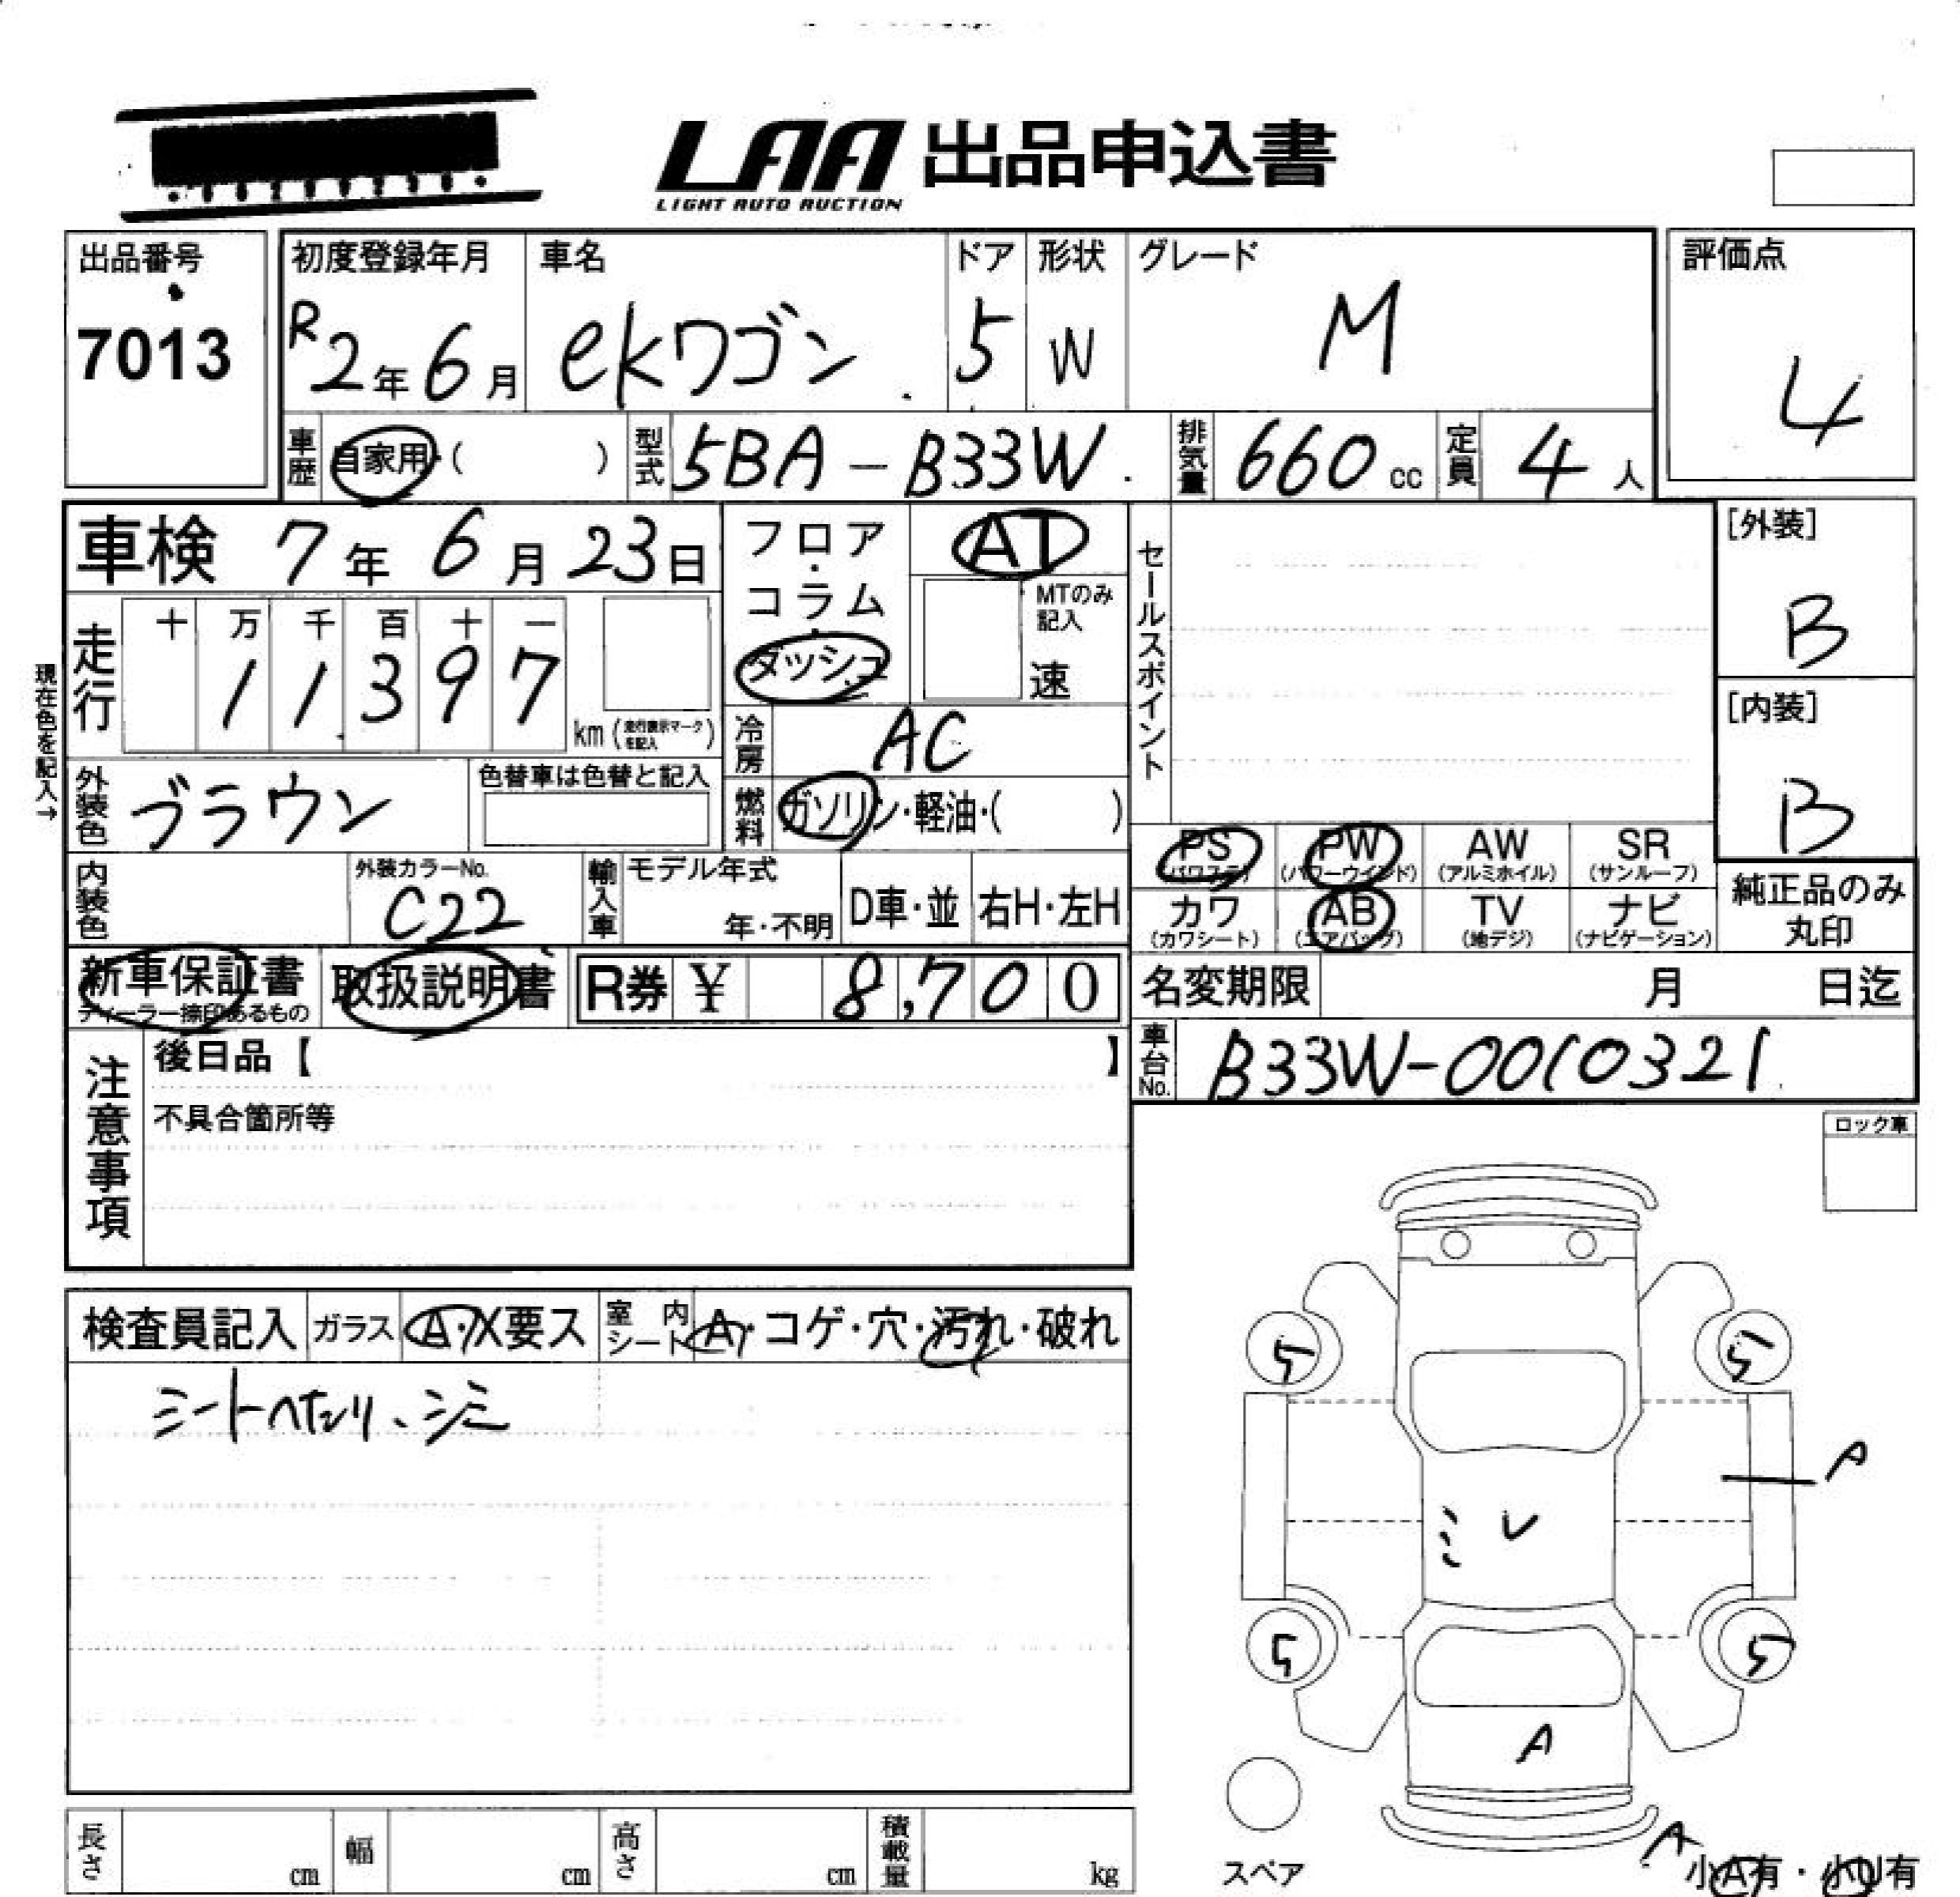 LAA 出品申込書
LIGHT AUTO AUCTION
出品番号
7013
初度登録年月
R2年6月
車名
ekワゴン
ドア
5
形状
W
グレード
M
評価点
4
車歴 自家用・( )
型式 5BA-B33W
排気量 660cc
定員 4人
車検 7年6月23日
フロア・コラム・ダッシュ
AT
MTのみ記入
速
セールスポイント
[外装]
B
[内装]
B
現在色を記入→
走行
十 万 千 百 十 一
1 1 3 9 7
km(走行表示マークを記入)
冷房 AC
外装色 ブラウン
色替車は色替と記入
燃料 ガソリン・軽油・( )
PS (パワステ) PW (パワーウインド) AW (アルミホイル) SR (サンルーフ)
カワ (カワシート) AB (エアバッグ) TV (地デジ) ナビ (ナビゲーション)
純正品のみ丸印
内装色
外装カラーNo.
C22
輸入車 モデル年式
年・不明
D車・並
右H・左H
新車保証書
ディーラー捺印あるもの
取扱説明書
R券 ¥ 8,700
名変期限 月 日迄
車台No. B33W-0010321
注意事項
後日品【 】
不具合箇所等
ロック車
検査員記入 ガラス A・X要ス 室内シート A・コゲ・穴・汚れ・破れ
シートへたり、シミ
5 5
A
ミ レ
5 5
A
A
スペア
小A有・小U有
長さ cm 幅 cm 高さ cm 積載量 kg